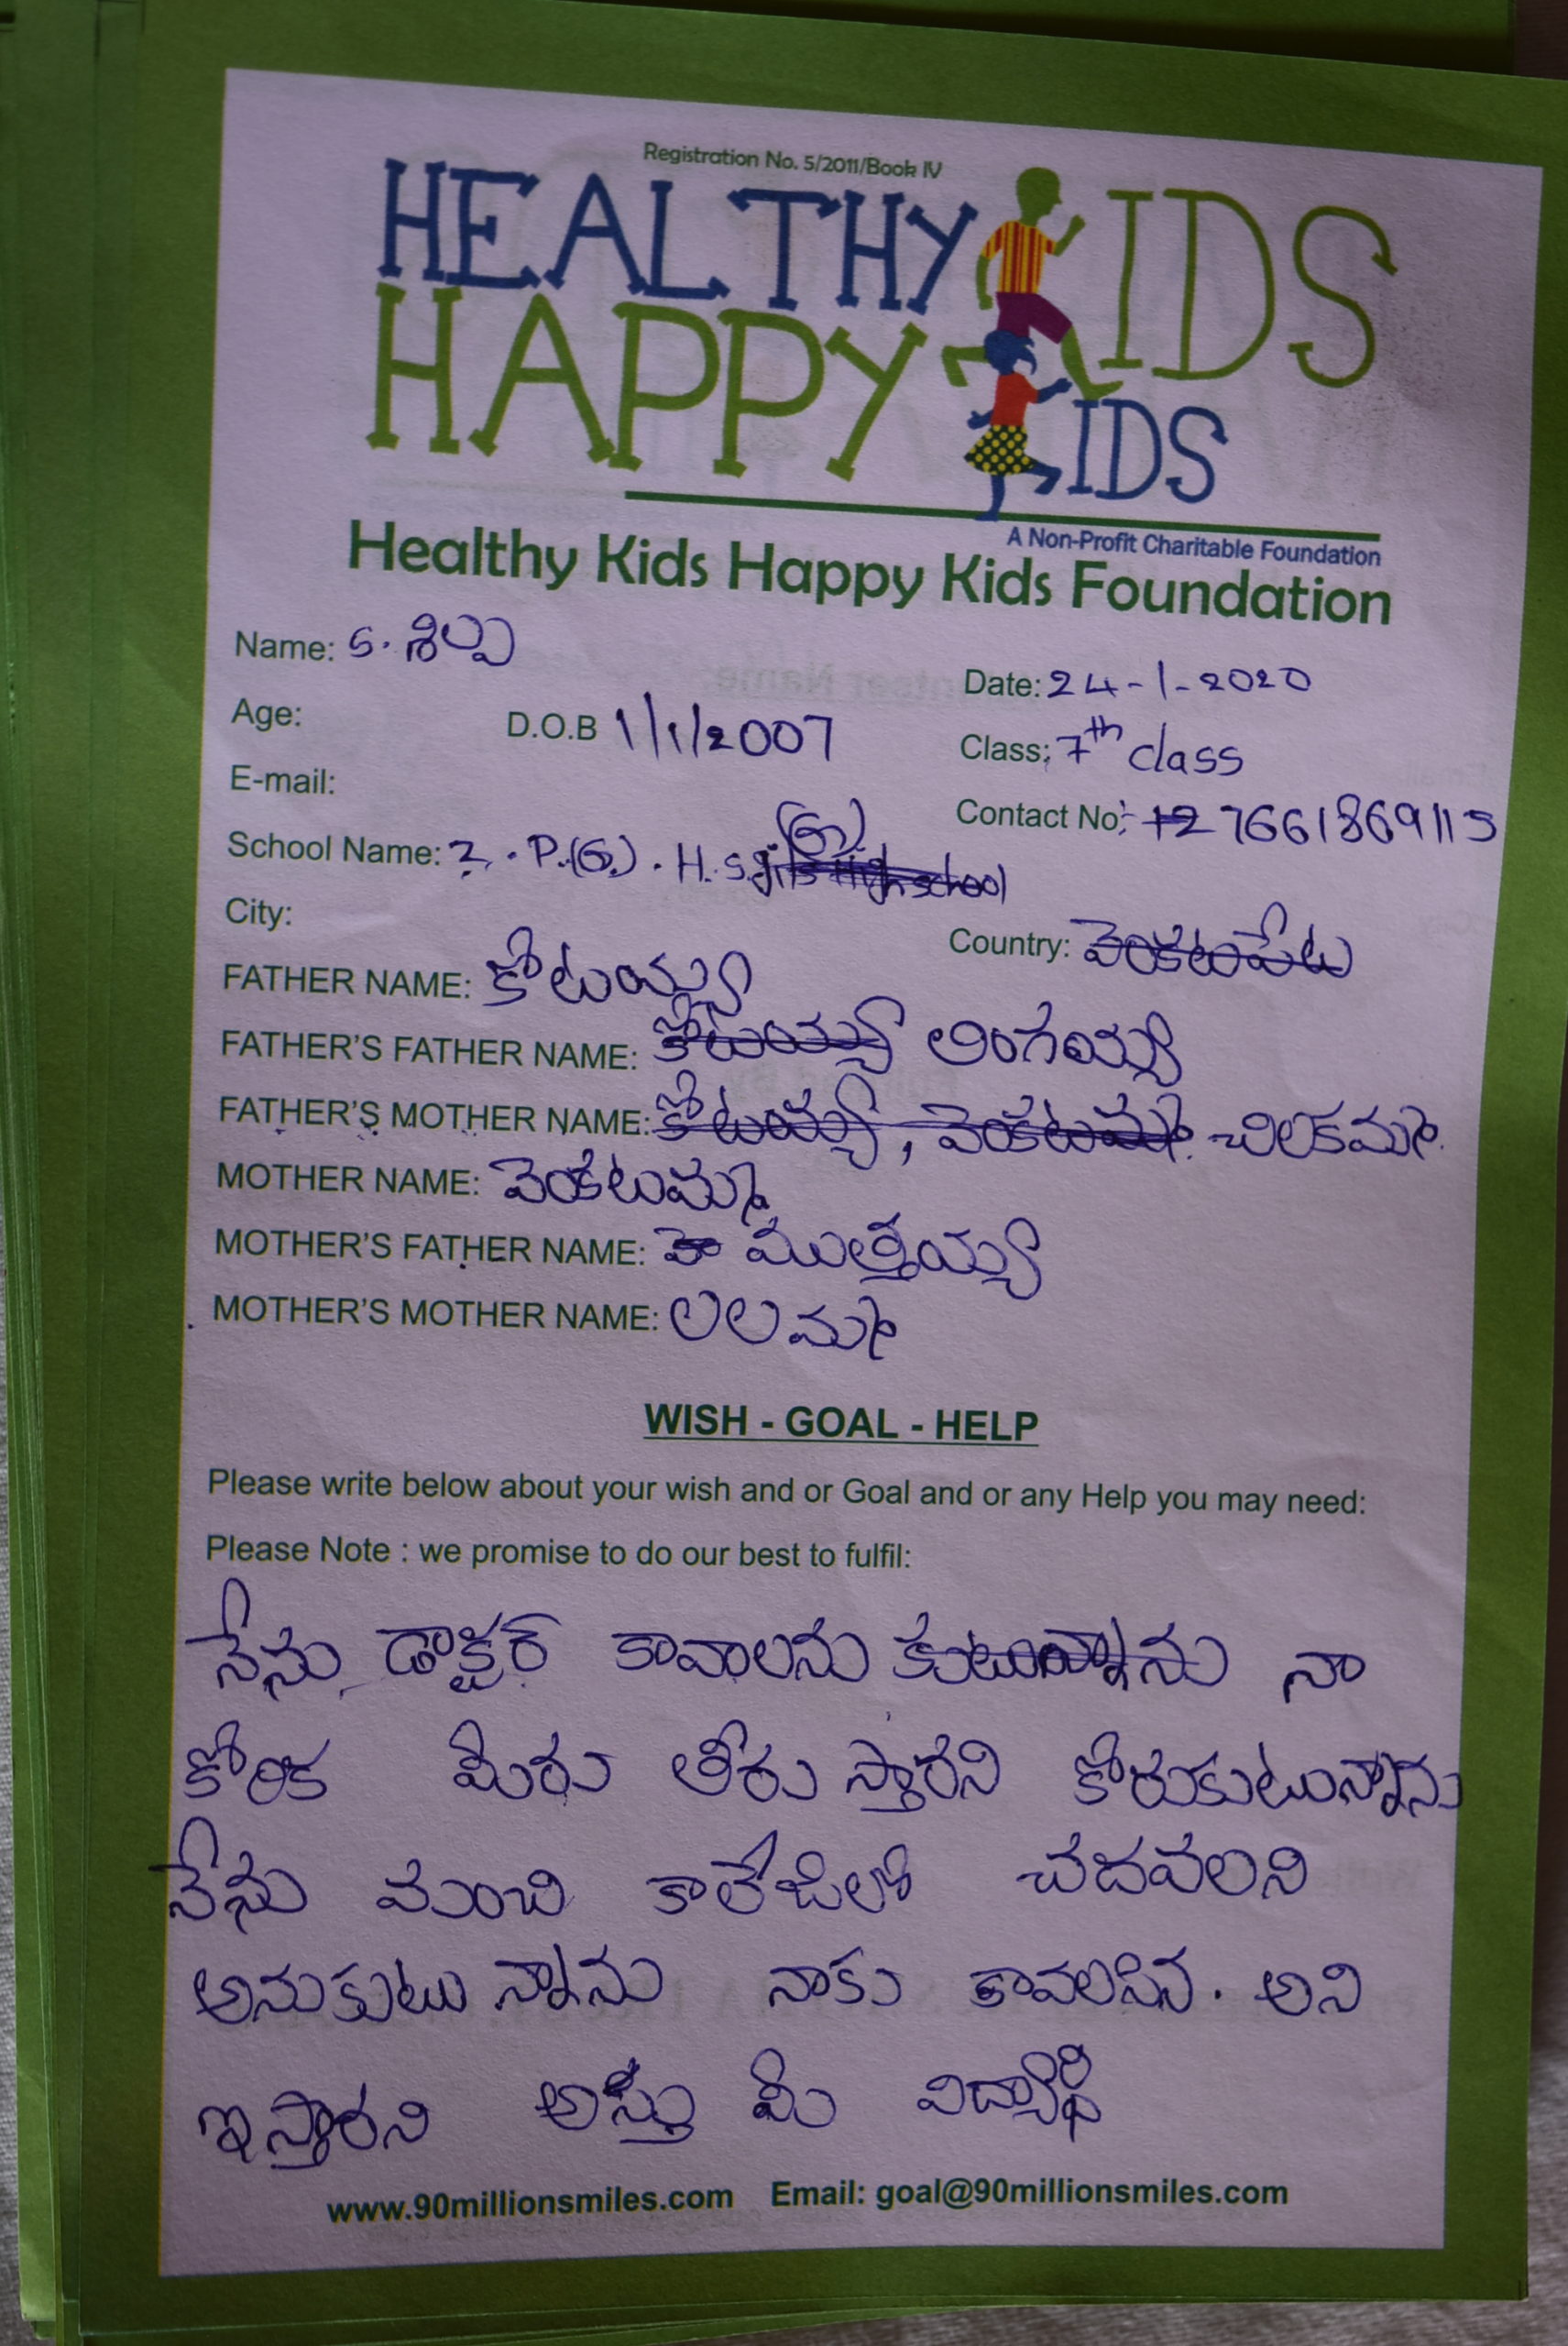 Registration No. 5/2011/Book IV
HEALTHY KIDS
HAPPY KIDS
A Non-Profit Charitable Foundation
Healthy Kids Happy Kids Foundation
Name: S. శిల్ప
Date: 24-1-2020
Age: D.O.B 1/1/2007
Class: 7th class
E-mail:
Contact No: 7661869115
School Name: Z.P.(G).H.S. (G)
City:
Country: వెంకటంపేట
FATHER NAME: కోటయ్య
FATHER'S FATHER NAME: కోటయ్య లింగయ్య
FATHER'S MOTHER NAME: కోటయ్య, వెంకటమ్మ చిలకమ్మ.
MOTHER NAME: వెంకటమ్మ
MOTHER'S FATHER NAME: ముత్తయ్య
MOTHER'S MOTHER NAME: లలమ్మ
WISH - GOAL - HELP
Please write below about your wish and or Goal and or any Help you may need:
Please Note : we promise to do our best to fulfil:
నేను డాక్టర్ కావాలను కుటున్నాను నా
కోరిక మీరు తీరు స్తారని కోరుకుటున్నాను
నేను మంచి కాలేజిలో చదవలని
అనుకుటు న్నాను నాకు కావలసిన. అని
ఇస్తారని అస్తు మీ విద్యార్థి
www.90millionsmiles.com Email: goal@90millionsmiles.com